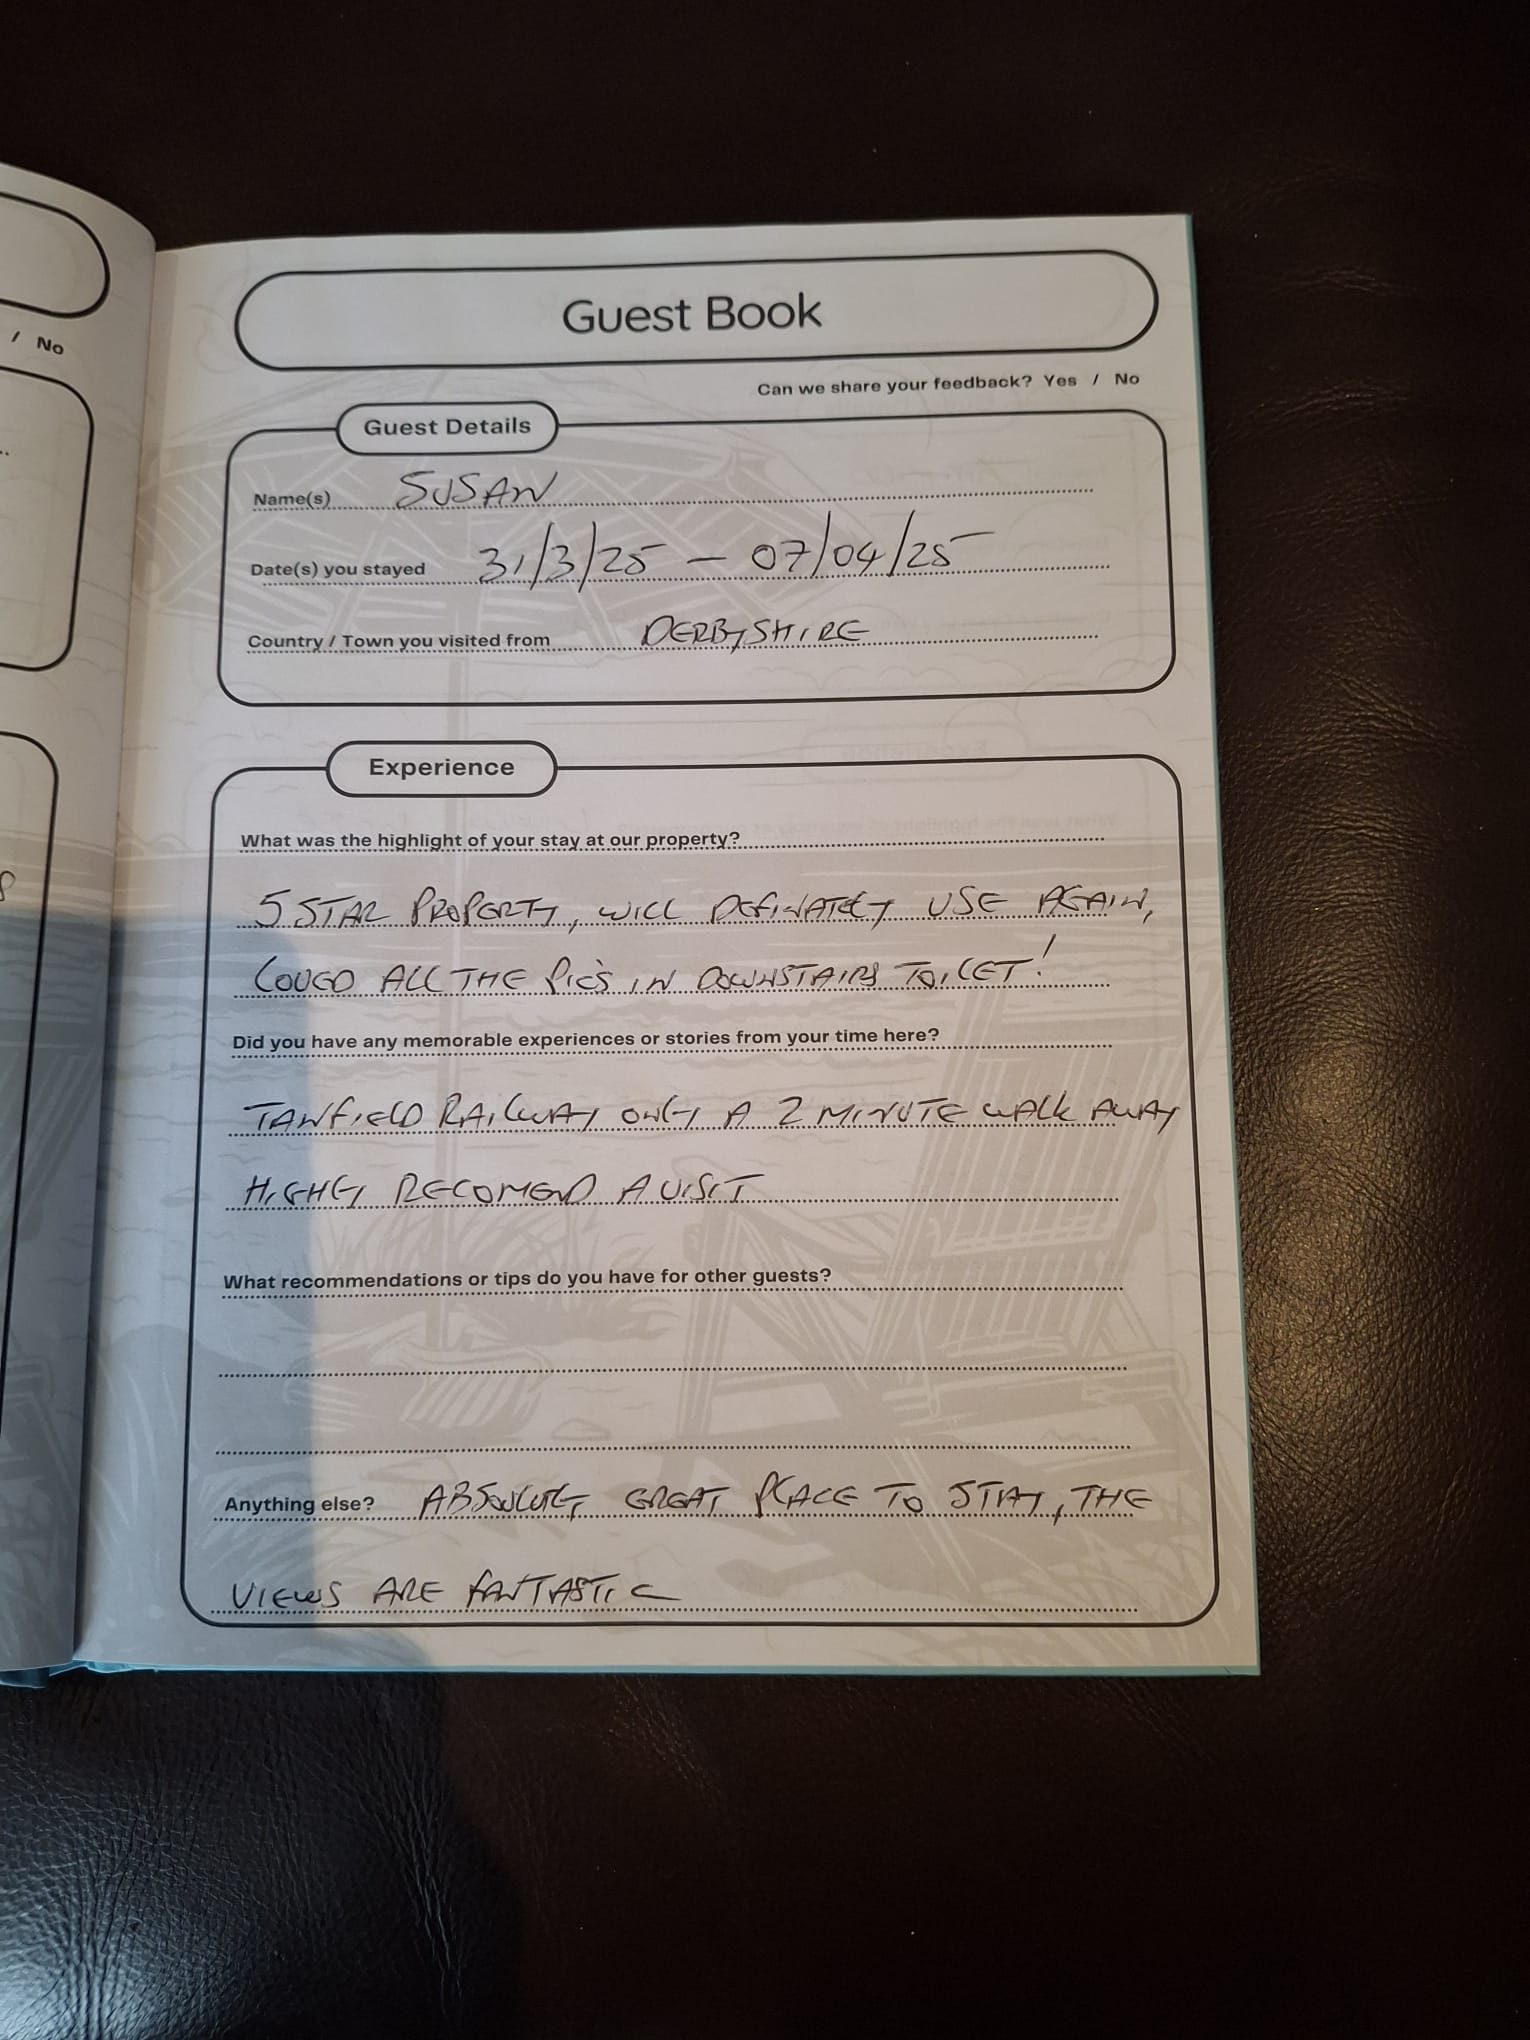 / No
Guest Book
Can we share your feedback? Yes / No
Guest Details
Name(s) SUSAN
Date(s) you stayed 31/3/25 – 07/04/25
Country / Town you visited from DERBYSHIRE
Experience
What was the highlight of your stay at our property?
5 STAR PROPERTY, WILL DEFINATELY USE AGAIN,
LOVED ALL THE PIC'S IN DOWNSTAIRS TOILET!
Did you have any memorable experiences or stories from your time here?
TANFIELD RAILWAY ONLY A 2 MINUTE WALK AWAY
HIGHLY RECOMEND A VISIT
What recommendations or tips do you have for other guests?
Anything else? ABSOLUTELY GREAT PLACE TO STAY, THE
VIEWS ARE FANTASTIC